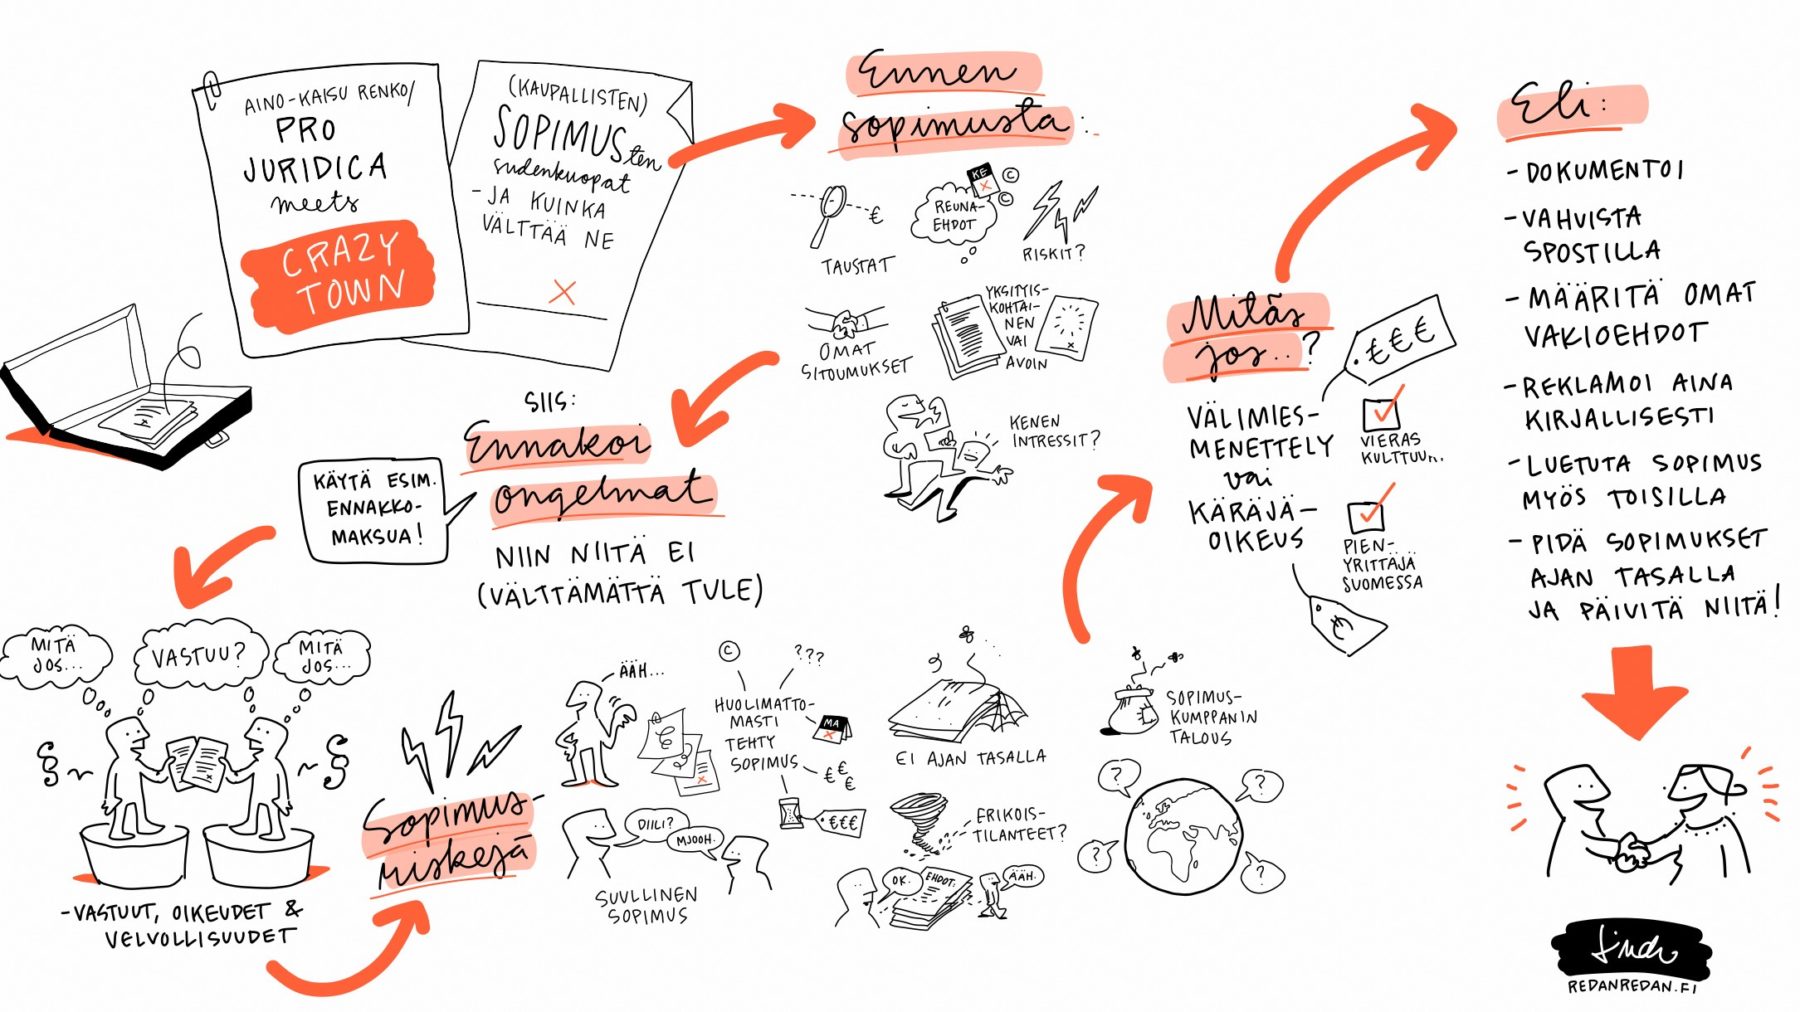 AINO-KAISU RENKO/
PRO
JURIDICA
meets
CRAZY
TOWN
(KAUPALLISTEN)
SOPIMUSten
sudenkuopat
- JA KUINKA
VÄLTTÄÄ NE
X
Ennen
sopimusta:
TAUSTAT
€
REUNA-
EHDOT
KE
X
©
©
RISKIT?
OMAT
SITOUMUKSET
YKSITYIS-
KOHTAI-
NEN
VAI
AVOIN
KENEN
INTRESSIT?
SIIS:
Ennakoi
ongelmat
NIIN NIITÄ EI
(VÄLTTÄMÄTTÄ TULE)
KÄYTÄ ESIM.
ENNAKKO-
MAKSUA!
MITÄ
JOS...
VASTUU?
MITÄ
JOS...
§
§
- VASTUUT, OIKEUDET &
VELVOLLISUUDET
Sopimus-
riskejä
ÄÄH...
©
???
HUOLIMATTO-
MASTI
TEHTY
SOPIMUS
MA
X
€€
€
€€€
DIILI?
MJOOH.
SUULLINEN
SOPIMUS
EI AJAN TASALLA
ERIKOIS-
TILANTEET?
OK.
EHDOT:
ÄÄH.
SOPIMUS-
KUMPPANIN
TALOUS
?
?
?
?
Mitäs
jos..?
VÄLIMIES-
MENETTELY
vai
KÄRÄJÄ-
OIKEUS
€€€
VIERAS
KULTTUURI.
PIEN-
YRITTÄJÄ
SUOMESSA
€
Eli:
- DOKUMENTOI
- VAHVISTA
SPOSTILLA
- MÄÄRITÄ OMAT
VAKIOEHDOT
- REKLAMOI AINA
KIRJALLISESTI
- LUETUTA SOPIMUS
MYÖS TOISILLA
- PIDÄ SOPIMUKSET
AJAN TASALLA
JA PÄIVITÄ NIITÄ!
REDANREDAN.FI